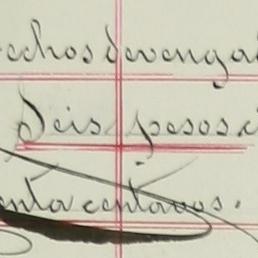 echos devenga
Seis pesos c
enta centavos.